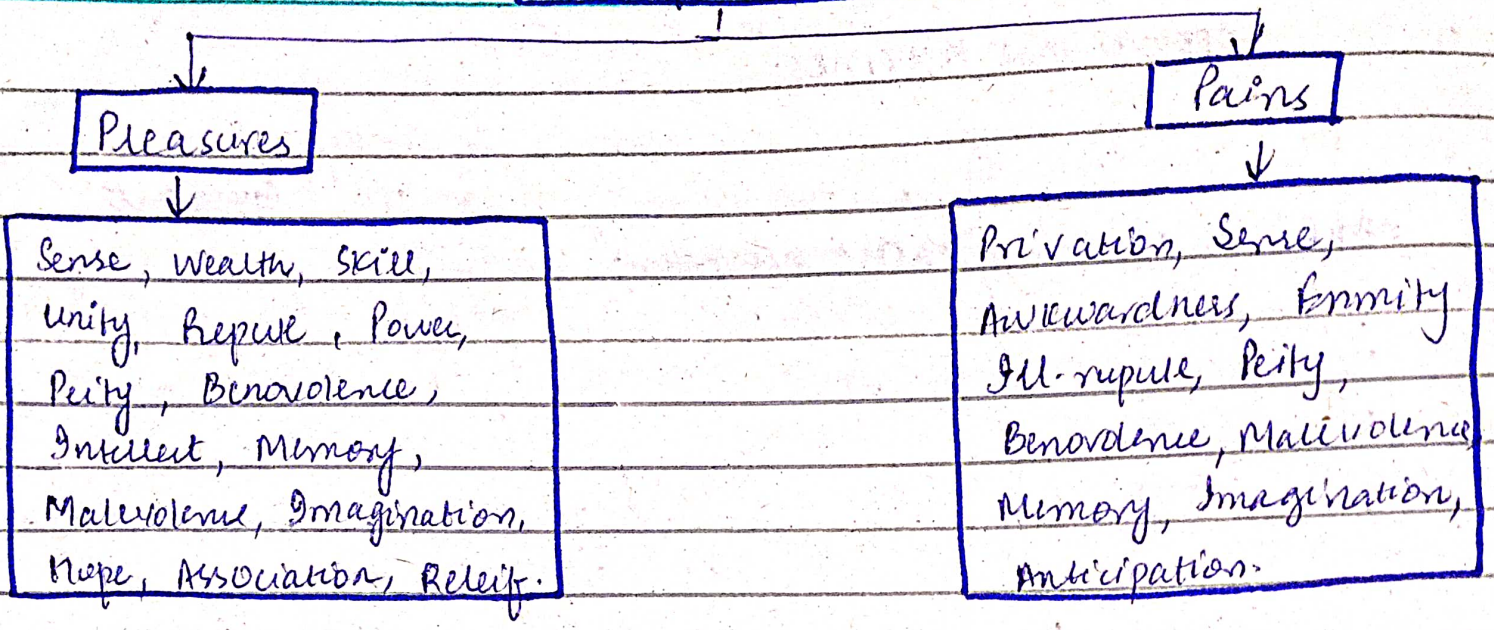 Pleasures
Pains
Sense, Wealth, Skill,
Unity, Repute, Power,
Peity, Benovolence,
Intellect, Memory,
Malevolence, Imagination,
Hope, Association, Releif.
Privation, Sense,
Awkwardness, Enmity
Ill-rupute, Peity,
Benovolence, Malevolence,
Memory, Imagination,
Anticipation.